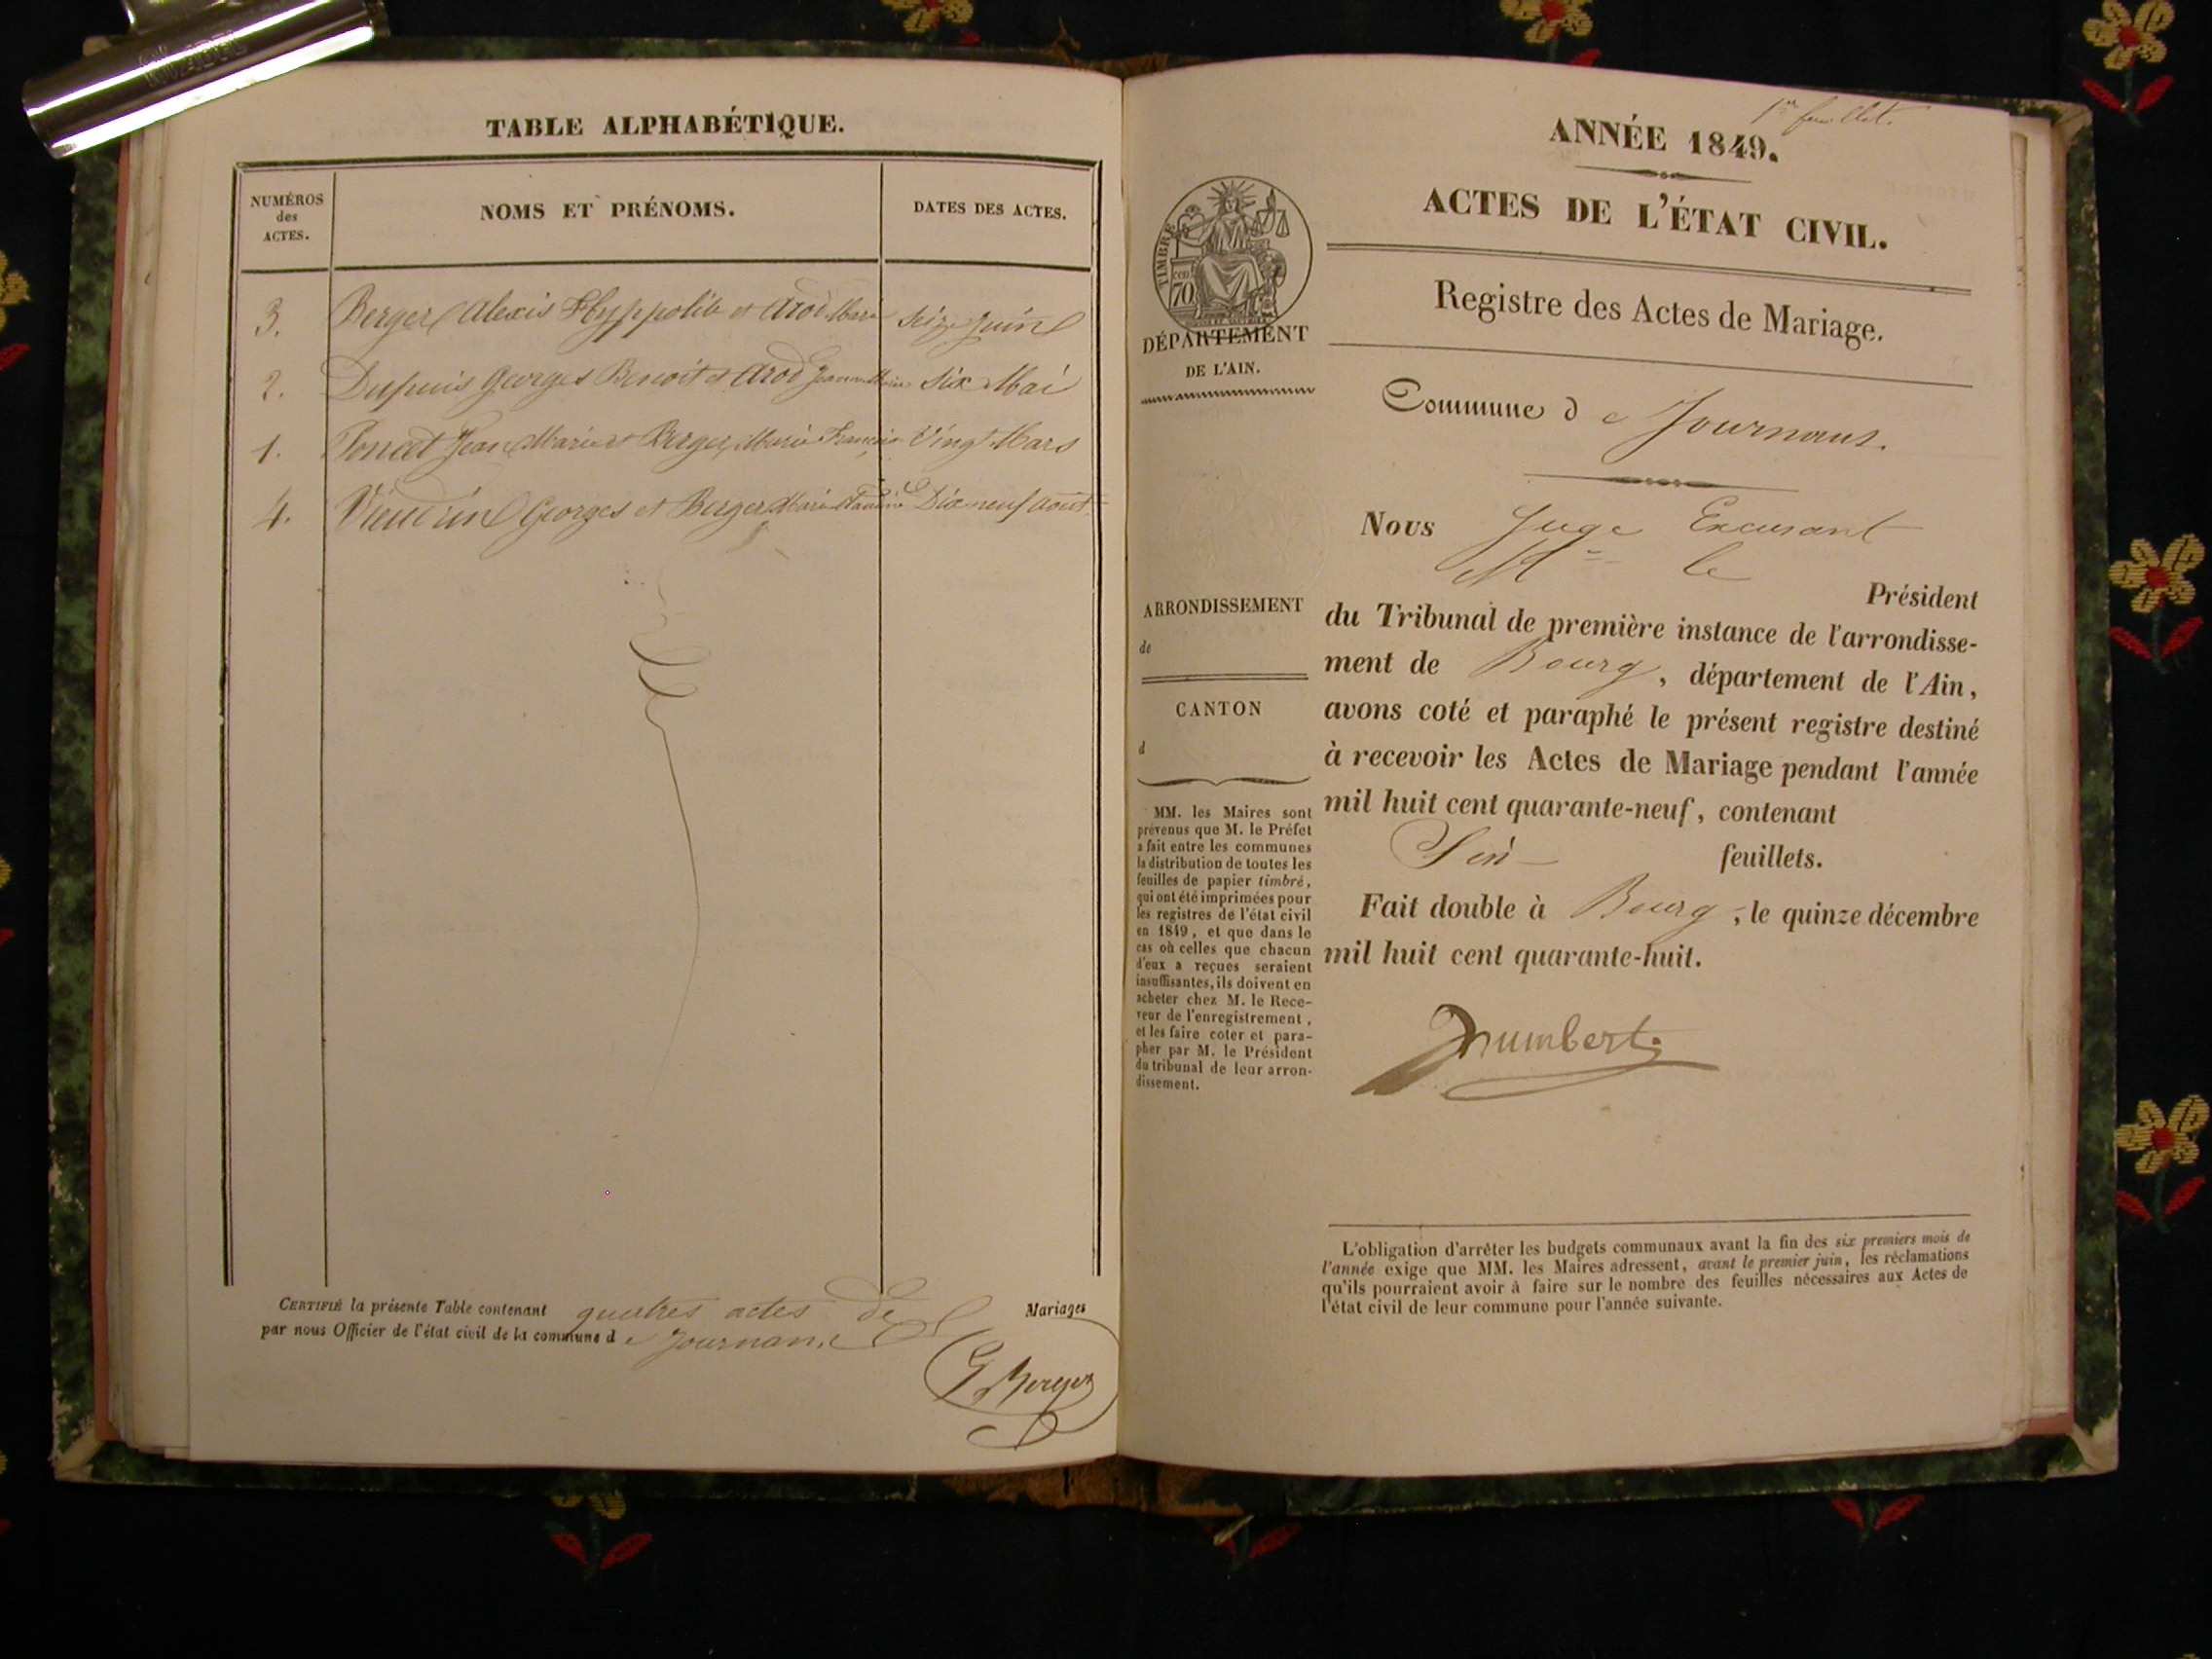 TABLE ALPHABÉTIQUE.
NUMÉROS
des
ACTES.
NOMS ET PRÉNOMS.
DATES DES ACTES.
3. Berger Alexis Hyppolite et Arod Marie Seize Juin
2. Dupuis Georges Benoit et Arod Jeanne Marie Six Mai
1. Poncet Jean Marie et Berger Marie Françoise Vingt Mars
4. Georges et Berger Marie Dix neuf aout
CERTIFIÉ la présente Table contenant quatres actes de Mariages
par nous Officier de l'état civil de la commune d e Journans
G Berger
1er feuillet.
ANNÉE 1849.
ACTES DE L'ÉTAT CIVIL.
Registre des Actes de Mariage.
TIMBRE
70
DÉPARTEMENT
DE L'AIN.
Commune d e Journans.
Nous Juge
Mr le
Président
du Tribunal de première instance de l'arrondisse-
ment de Bourg, département de l'Ain,
avons coté et paraphé le présent registre destiné
à recevoir les Actes de Mariage pendant l'année
mil huit cent quarante-neuf, contenant
feuillets.
Fait double à Bourg, le quinze décembre
mil huit cent quarante-huit.
humbert
ARRONDISSEMENT
de
CANTON
d
MM. les Maires sont
prévenus que M. le Préfet
a fait entre les communes
la distribution de toutes les
feuilles de papier timbré,
qui ont été imprimées pour
les registres de l'état civil
en 1849, et que dans le
cas où celles que chacun
d'eux a reçues seraient
insuffisantes, ils doivent en
acheter chez M. le Rece-
veur de l'enregistrement,
et les faire coter et para-
pher par M. le Président
du tribunal de leur arron-
dissement.
L'obligation d'arrêter les budgets communaux avant la fin des six premiers mois de
l'année exige que MM. les Maires adressent, avant le premier juin, les réclamations
qu'ils pourraient avoir à faire sur le nombre des feuilles nécessaires aux Actes de
l'état civil de leur commune pour l'année suivante.